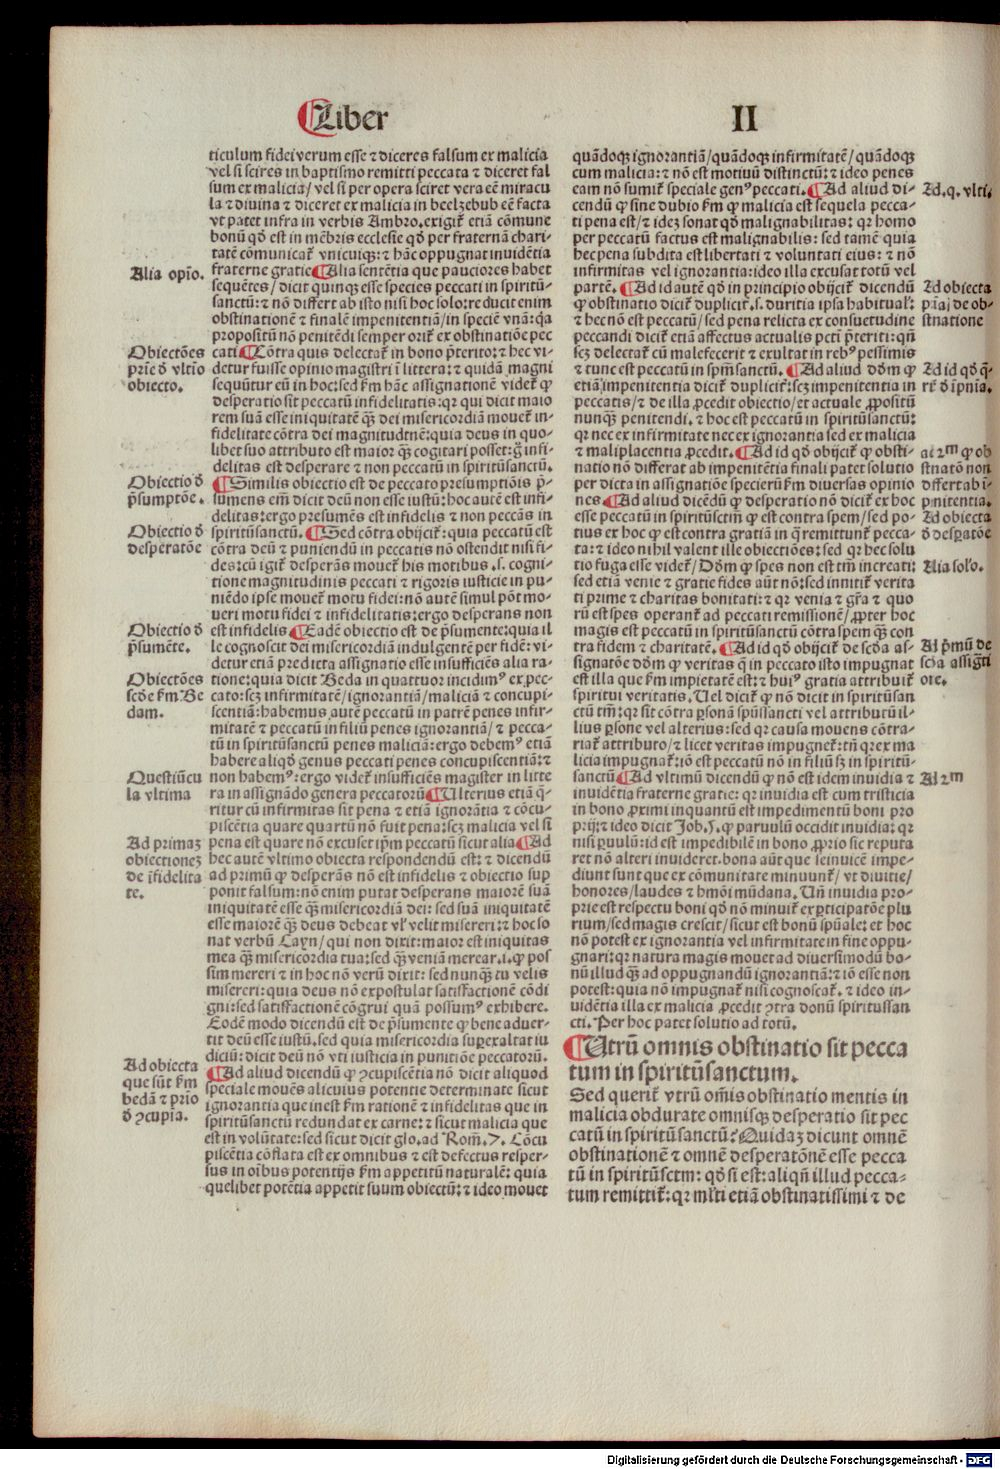 Liber
II
ticulum fidei verum esse ⁊ diceres falsum ex malicia
vel si scires in baptismo remitti peccata ⁊ diceret fal
sum ex malicia/ vel si per opera sciret vera eē miracu
la ⁊ diuina ⁊ diceret ex malicia in beelzebub eē facta
vt patet infra in verbis Ambro. exigit̄ etiā cōmune
bonū qd̄ est in mēbris ecclesie qd̄ per fraternā chari-
tatē cōmunicat̄ vnicuiqꝫ: ⁊ hāc oppugnat inuidētia
fraterne gratie ¶ Alia sentētia que pauciores habet
sequētes/ dicit quinqꝫ esse species peccati in spiritū-
sanctū: ⁊ nō differt ab isto nisi hoc solo: reducit enim
obstinationē ⁊ finalē impenitentiā/ in speciē vnā: q̄a
propositū nō penitēdi semper orit̄ ex obstinatiōe pec
cati ¶ Cōtra quis delectat̄ in bono p̄terito: ⁊ hec vi-
detur fuisse opinio magistri ī littera: ⁊ quidā magni
sequūtur eū in hoc: sed ẜm hāc assignationē videt̄ ꝙ
desperatio sit peccatū infidelitatis: qꝛ qui dicit maio
rem suā esse iniquitatē qꝫ dei misericordiā mouet̄ in-
fidelitate cōtra dei magnitudinē: quia deus in quo-
libet suo attributo est maior qꝫ cogitari posset: g̊ infi-
delitas est desperare ⁊ non peccatū in spiritūsanctū.
¶ Similis obiectio est de peccato presumptiōis p̄-
sumens em̄ dicit deū non esse iustū: hoc autē est infi-
delitas: ergo presumēs est infidelis ⁊ non peccās in
spiritūsanctū. ¶ Sed cōtra obijcit̄: quia peccatū est
cōtra deū ⁊ puniendū in peccatis nō ostendit nisi fi-
des: cū igit̄ desperās mouet̄ his motibus .s. cogni-
tione magnitudinis peccati ⁊ rigoris iusticie in pu-
niēdo ipse mouet̄ motu fidei: nō autē simul pōt mo-
ueri motu fidei ⁊ infidelitatis: ergo desperans non
est infidelis ¶ Eadē obiectio est de p̄sumente: quia il
le cognoscit dei misericordiā indulgentē per fidē: vi-
detur etiā predicta assignatio esse insufficiēs alia ra-
tione: quia dicit Beda in quattuor incidimꝰ ex pec-
cato: scꝫ infirmitatē/ ignorantiā/ maliciā ⁊ concupi-
scentiā: habemus autē peccatū in patrē penes infir-
mitatē ⁊ peccatū in filiū penes ignorantiā/ ⁊ pecca-
tū in spiritūsanctū penes maliciā: ergo debemꝰ etiā
habere aliqd̄ genus peccati penes concupiscentiā: ⁊
non habemꝰ: ergo videt̄ insufficiēs magister in litte
ra in assignādo genera peccatorū ¶ Ulterius etiā q̄-
ritur cū infirmitas sit pena ⁊ etiā ignorātia ⁊ cōcu-
piscētia quare quartū nō fuit pena: scꝫ malicia vel si
pena est quare non excuset ip̄m peccatū sicut alia ¶ Ad
hec autē vltimo obiecta respondendū est: ⁊ dicendū
ad primū ꝙ desperās nō est infidelis ⁊ obiectio sup
ponit falsum: nō enim putat desperans maiorē suā
iniquitatē esse qꝫ misericordiā dei: sed suā iniquitatē
esse maiorē qꝫ deus debeat vl̓ velit misereri: ⁊ hoc so
nat verbū Cayn/ qui non dixit: maior est iniquitas
mea qꝫ misericordia tua: sed qꝫ veniā merear .i. ꝙ pos
sim mereri ⁊ in hoc nō verū dixit: sed nunqꝫ tu velis
misereri: quia deus nō expostulat satisfactionē cōdi
gni: sed satisfactionē cōgrui quā possumꝰ exhibere.
Eodē modo dicendū est de p̄sumente ꝙ bene aduer-
tit deū esse iustū. sed quia misericordia suꝑexaltat iu
diciū: dicit deū nō vti iusticia in punitiōe peccatorū.
¶ Ad aliud dicendū ꝙ ꝯcupiscētia nō dicit aliquod
speciale mouēs alicuius potentie determinate sicut
ignorantia que inest ẜm rationē ⁊ infidelitas que in
spiritūsanctū redundat ex carne: ⁊ sicut malicia que
est in volūtate: sed sicut dicit glo. ad Rom̄. 7. Cōcu
piscētia cōflata est ex omnibus ⁊ est defectus resper-
sus in oībus potentijs ẜm appetitū naturalē: quia
quelibet potētia appetit suum obiectū: ⁊ ideo mouet
Alia opio.
Obiectōes
p̄rie đ vltīo
obiecto.
Obiectio đ
p̄sumptōe.
Obiectio đ
desperatōe
Obiectio đ
p̄sumēte.
Obiectōes
scđe ẜm Be
dam.
Questiūcu
la vltima
Ad primaꝫ
obiectioneꝫ
de ifidelita
te.
Ad obiecta
que sūt ẜm
bedā ⁊ p̄rio
đ ꝯcupia.
quādoqꝫ ignorantiā/ quādoqꝫ infirmitatē/ quādoqꝫ
cum malicia: ⁊ nō est motiuū distinctū: ⁊ ideo penes
eam nō sumit̄ speciale genꝰ peccati. ¶ Ad aliud di-
cendū ꝙ sine dubio ẜm ꝙ malicia est sequela pecca-
ti pena est/ ⁊ ideꝫ sonat qd̄ malignabilitas: qꝛ homo
per peccatū factus est malignabilis: sed tamē quia
hec pena subdita est libertati ⁊ voluntati eius: ⁊ nō
infirmitas vel ignorantia: ideo illa excusat totū vel
partē. ¶ Ad id autē qd̄ in principio obijcit̄ dicendū
ꝙ obstinatio dicit̄ duplicit̄ .s. duritia ipsa habitual̓:
⁊ hec nō est peccatū/ sed pena relicta ex consuetudine
peccandi dicit̄ etiā affectus actualis pcti p̄teriti: qn̄
scꝫ delectat̄ cū malefecerit ⁊ exultat in rebꝰ pessimis
⁊ tunc est peccatū in spm̄sanctū. ¶ Ad aliud dōm ꝙ
etiā impenitentia dicit̄ duplicit̄: scꝫ impenitentia in
peccatis/ ⁊ de illa ꝓcedit obiectio/ et actuale ꝓpositū
nunqꝫ penitendi. ⁊ hoc est peccatū in spiritūsanctū:
qꝛ nec ex infirmitate nec ex ignorantia sed ex malicia
⁊ maliplacentia ꝓcedit. ¶ Ad id qd̄ obijcit̄ ꝙ obsti-
natio nō differat ab impenitētia finali patet solutio
per dicta in assignatiōe specierū ẜm diuersas opinio
nes. ¶ Ad aliud dicēdū ꝙ desperatio nō dicit̄ ex hoc
esse peccatū in spiritūsctm̄ ꝙ est contra spem/ sed po-
tius ex hoc ꝙ est contra gratiā in q̄ remittunt̄ pecca-
ta: ⁊ ideo nihil valent ille obiectiōes: sed qꝛ hec solu
tio fuga esse videt̄/ Dōm ꝙ spes non est tm̄ increati:
sed etiā venie ⁊ gratie fides aūt nō: sed innitit̄ verita
ti prime ⁊ charitas bonitati: ⁊ qꝛ venia ⁊ gr̄a ⁊ quo
rū est spes operant̄ ad peccati remissionē/ ꝓpter hoc
magis est peccatū in spiritūsanctū cōtra spem qꝫ con
tra fidem ⁊ charitatē. ¶ Ad id qd̄ obijcit̄ de scđa as-
signatōe dōm ꝙ veritas q̄ in peccato isto impugnat̄
est illa que ẜm impietatē est: ⁊ huiꝰ gratia attribuit̄
spiritui veritatis. Uel dicit̄ ꝙ nō dicit in spiritūsan
ctū tm̄: qꝛ sit cōtra ꝑsonā spūssancti vel attributū il-
lius ꝑsone vel alterius: sed qꝛ causa mouens cōtra-
riat̄ attributo/ ⁊ licet veritas impugnet̄: tn̄ qꝛ ex ma
licia impugnat̄: iō est peccatū nō in filiū sꝫ in spiritū-
sanctū ¶ Ad vltimū dicendū ꝙ nō est idem inuidia ⁊
inuidētia fraterne gratie: qꝛ inuidia est cum tristicia
in bono ꝓximi inquantū est impedimentū boni pro
prij: ⁊ ideo dicit Job. 5. ꝙ paruulū occidit inuidia: qꝛ
nisi ꝑuulū: id est impedibilē in bono ꝓprio sic reputa
ret nō alteri inuideret. bona aūt que seinuicē impe-
diunt sunt que ex cōmunitate minuunt̄/ vt diuitie/
honores/ laudes ⁊ hmōi mūdana. Un̄ inuidia pro-
prie est respectu boni qd̄ nō minuit̄ ex ꝑticipatōe plu
rium/ sed magis crescit/ sicut est bonū spūale: et hoc
nō potest ex ignorantia vel infirmitate in fine oppu-
gnari: qꝛ natura magis mouet ad diuersimodū bo-
nū illud qꝫ ad oppugnandū ignorantiā: ⁊ iō esse non
potest: quia nō impugnat̄ nisi cognoscat̄. ⁊ ideo in-
uidētia illa ex malicia ꝓcedit ꝯtra donū spiritussan
cti. Per hoc patet solutio ad totū.
¶ Utrū omnis obstinatio sit pecca
tum in spiritūsanctum.
Sed querit̄ vtrū oīs obstinatio mentis in
malicia obdurate omnisqꝫ desperatio sit pec
catū in spiritūsanctū? Quidaꝫ dicunt omnē
obstinationē ⁊ omnē desperatōnē esse pecca
tū in spiritūsctm: qd̄ si est: aliqn̄ illud pecca-
tum remittit̄: qꝛ ml̓ti etiā obstinatissimi ⁊ de
Ad .q. vlti.
Ad obiecta
de ob-
stinatione
Ad id qd̄ q̄-
rit̄ đ ip̄nīa.
ai 2ᵐ ꝙ ob
stinatō non
differt ab ī-
penitentia.
Ad obiecta
đ desꝑatōe
Alia solo.
Al p̄mū de
scđa assigti
oīe.
Al 2ᵐ
Digitalisierung gefördert durch die Deutsche Forschungsgemeinschaft - DFG